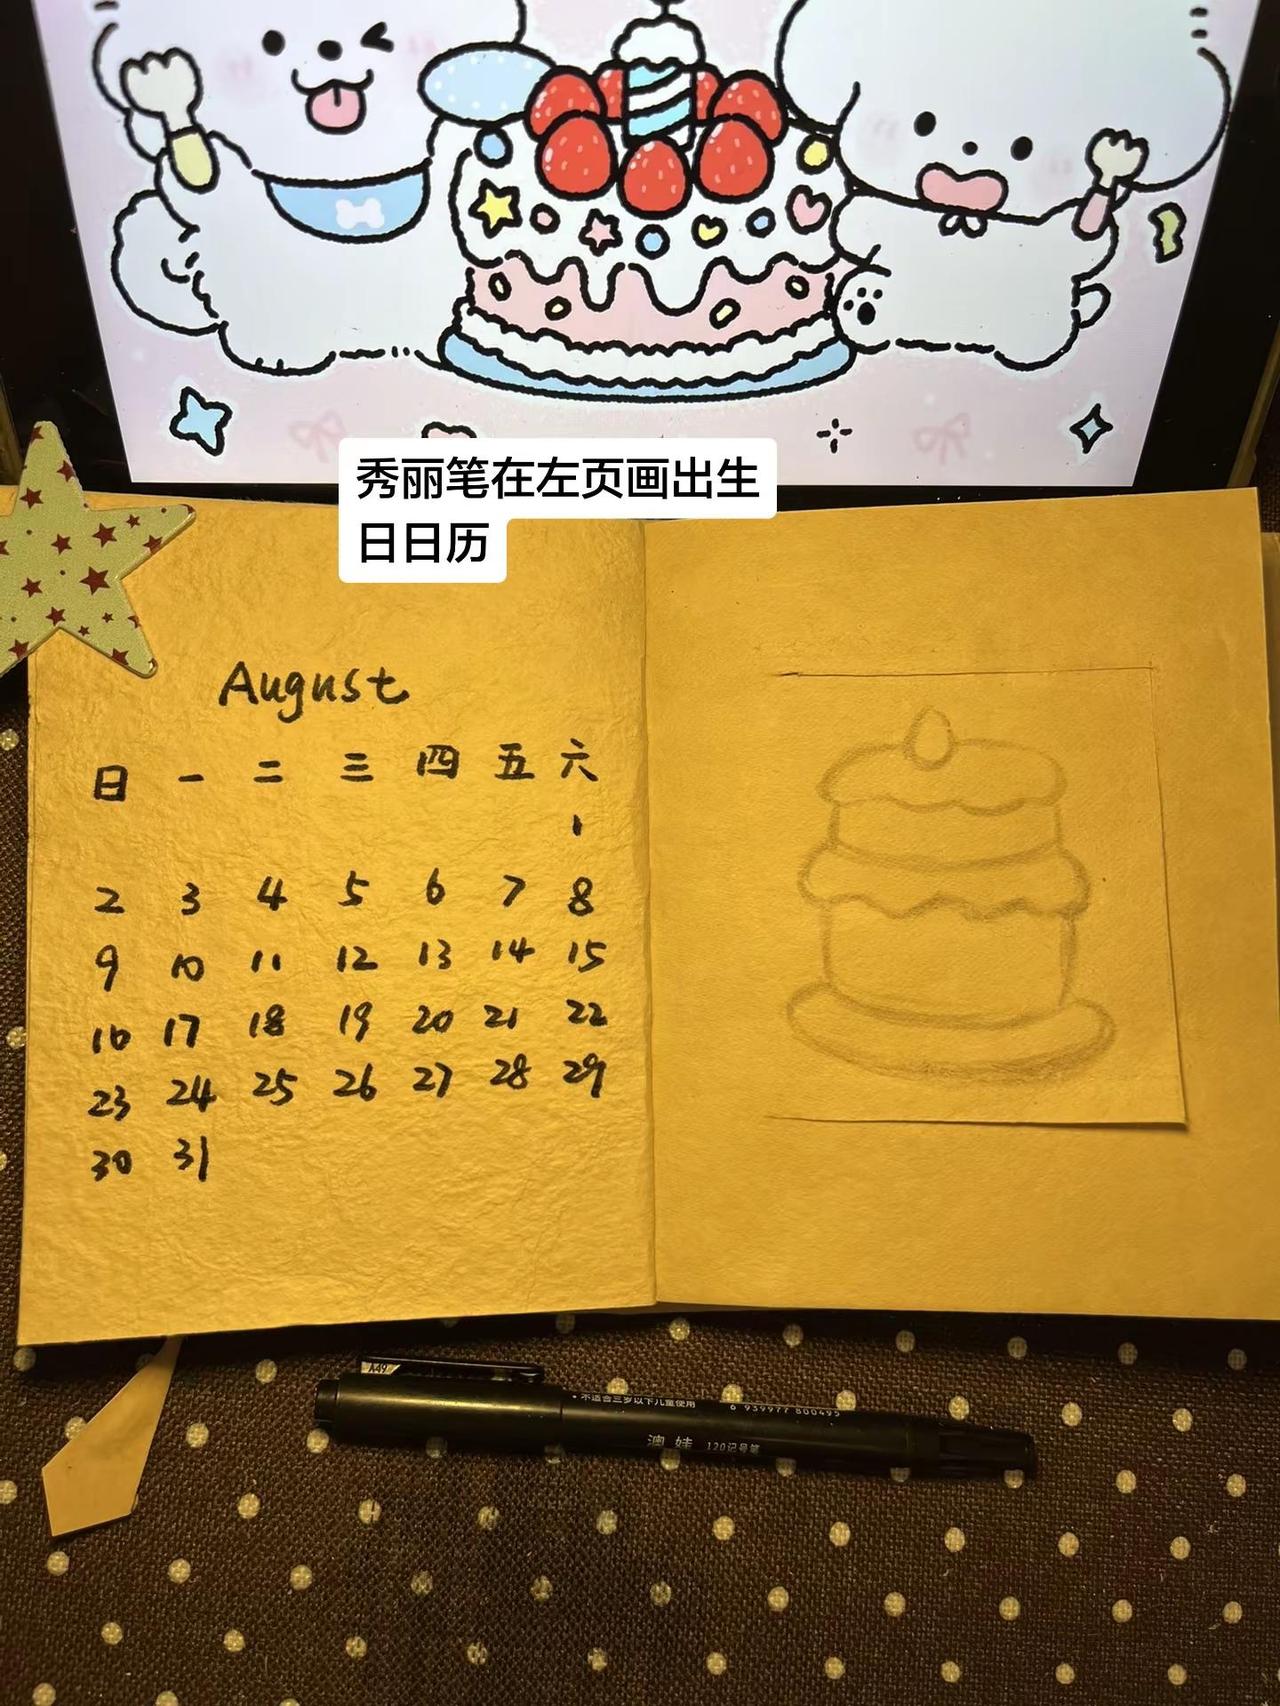 秀丽笔在左页画出生
日日历
August
日 一 二 三 四 五 六
1
2 3 4 5 6 7 8
9 10 11 12 13 14 15
16 17 18 19 20 21 22
23 24 25 26 27 28 29
30 31
A49
•不适合三岁以下儿童使用 6 939977 800495
澳娃 120记号笔